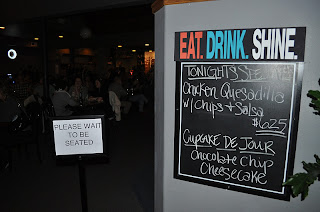 EAT. DRINK. SHINE.
TONIGHTS
Chicken Quesadilla
w/ Chips + Salsa
$6.25
CUPCAKE DE JOUR
Chocolate Chip
Cheesecake
PLEASE WAIT
TO BE
SEATED